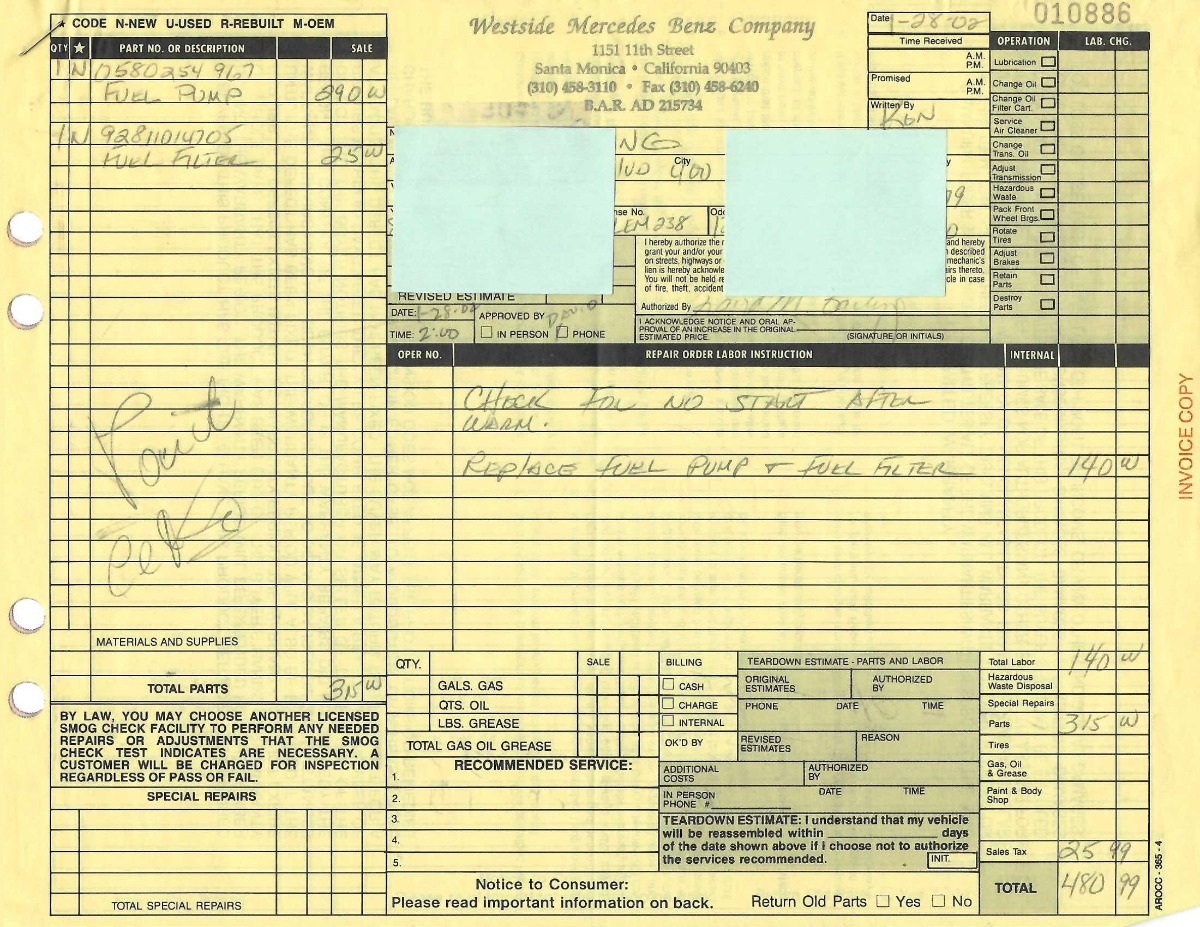 ★ CODE N-NEW U-USED R-REBUILT M-OEM
QTY ★ PART NO. OR DESCRIPTION SALE
1 N 0580254 967
FUEL PUMP 290 00
1 N 92811014705
FUEL FILTER 25 00
Paid
MATERIALS AND SUPPLIES
TOTAL PARTS 315 00
BY LAW, YOU MAY CHOOSE ANOTHER LICENSED
SMOG CHECK FACILITY TO PERFORM ANY NEEDED
REPAIRS OR ADJUSTMENTS THAT THE SMOG
CHECK TEST INDICATES ARE NECESSARY. A
CUSTOMER WILL BE CHARGED FOR INSPECTION
REGARDLESS OF PASS OR FAIL.
SPECIAL REPAIRS
TOTAL SPECIAL REPAIRS
Westside Mercedes Benz Company
1151 11th Street
Santa Monica • California 90403
(310) 458-3110 • Fax (310) 458-6240
B.A.R. AD 215734
Date 1-28-02
Time Received
A.M.
P.M.
Promised
A.M.
P.M.
Written By
KEN
010886
OPERATION LAB. CHG.
Lubrication
Change Oil
Change Oil
Filter Cart.
Service
Air Cleaner
Change
Trans. Oil
Adjust
Transmission
Hazardous
Waste
Pack Front
Wheel Brgs.
Rotate
Tires
Adjust
Brakes
Retain
Parts
Destroy
Parts
NG
City
nse No.
LEM 238
Odo
I hereby authorize the r and hereby
grant your and/or your described
on streets, highways or mechanic's
lien is hereby acknowle irs thereto.
You will not be held re cle in case
of fire, theft, accident
Authorized By
REVISED ESTIMATE
DATE: 1-28-02 APPROVED BY DAVID
TIME: 2:00 IN PERSON PHONE
I ACKNOWLEDGE NOTICE AND ORAL AP-
PROVAL OF AN INCREASE IN THE ORIGINAL
ESTIMATED PRICE. (SIGNATURE OR INITIALS)
OPER NO. REPAIR ORDER LABOR INSTRUCTION INTERNAL
CHECK FOR NO START AFTER
WARM.
REPLACE FUEL PUMP + FUEL FILTER 140 00
INVOICE COPY
QTY. SALE
GALS. GAS
QTS. OIL
LBS. GREASE
TOTAL GAS OIL GREASE
RECOMMENDED SERVICE:
1.
2.
3.
4.
5.
BILLING
CASH
CHARGE
INTERNAL
OK'D BY
TEARDOWN ESTIMATE - PARTS AND LABOR
ORIGINAL
ESTIMATES
AUTHORIZED
BY
PHONE DATE TIME
REVISED
ESTIMATES
REASON
ADDITIONAL
COSTS
AUTHORIZED
BY
IN PERSON
PHONE #
DATE TIME
TEARDOWN ESTIMATE: I understand that my vehicle
will be reassembled within days
of the date shown above if I choose not to authorize
the services recommended.
INIT.
Notice to Consumer:
Please read important information on back.
Return Old Parts Yes No
Total Labor 140 00
Hazardous
Waste Disposal
Special Repairs
Parts 315 00
Tires
Gas, Oil
& Grease
Paint & Body
Shop
Sales Tax 25 99
TOTAL 480 99
AROCC - 365 - 4